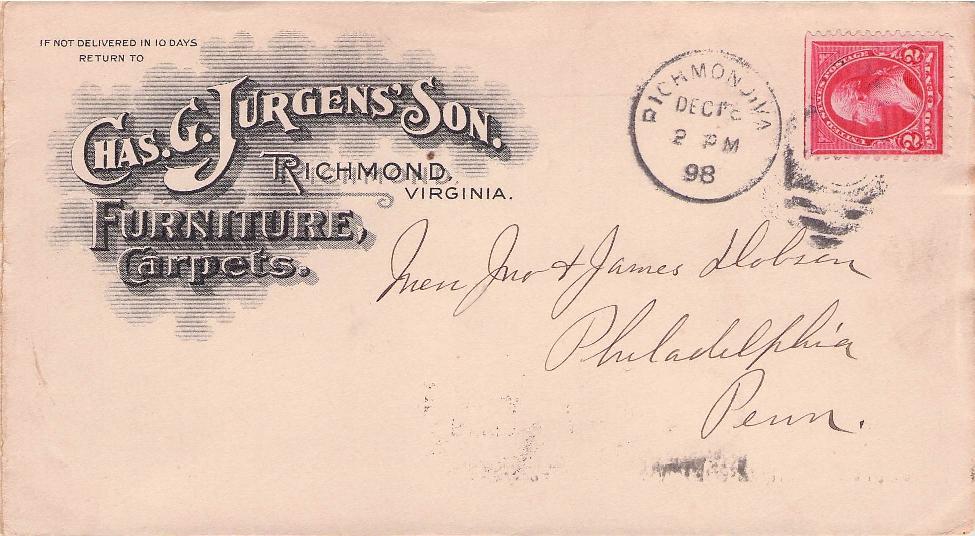 IF NOT DELIVERED IN 10 DAYS
RETURN TO
CHAS. G. JURGENS' SON.
RICHMOND,
VIRGINIA.
FURNITURE,
Carpets.
RICHMOND, VA
DEC
2 PM
98
UNITED STATES POSTAGE
2 2
Jno & James Dobson
Philadelphia
Penn.